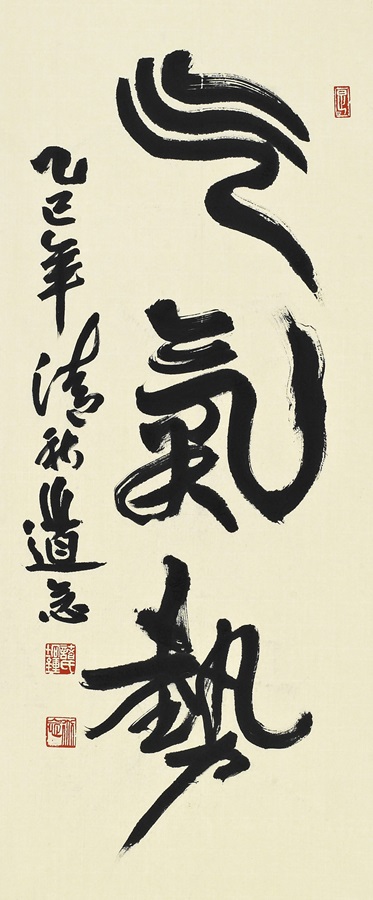 气氣勢
乙巳年清秋道念